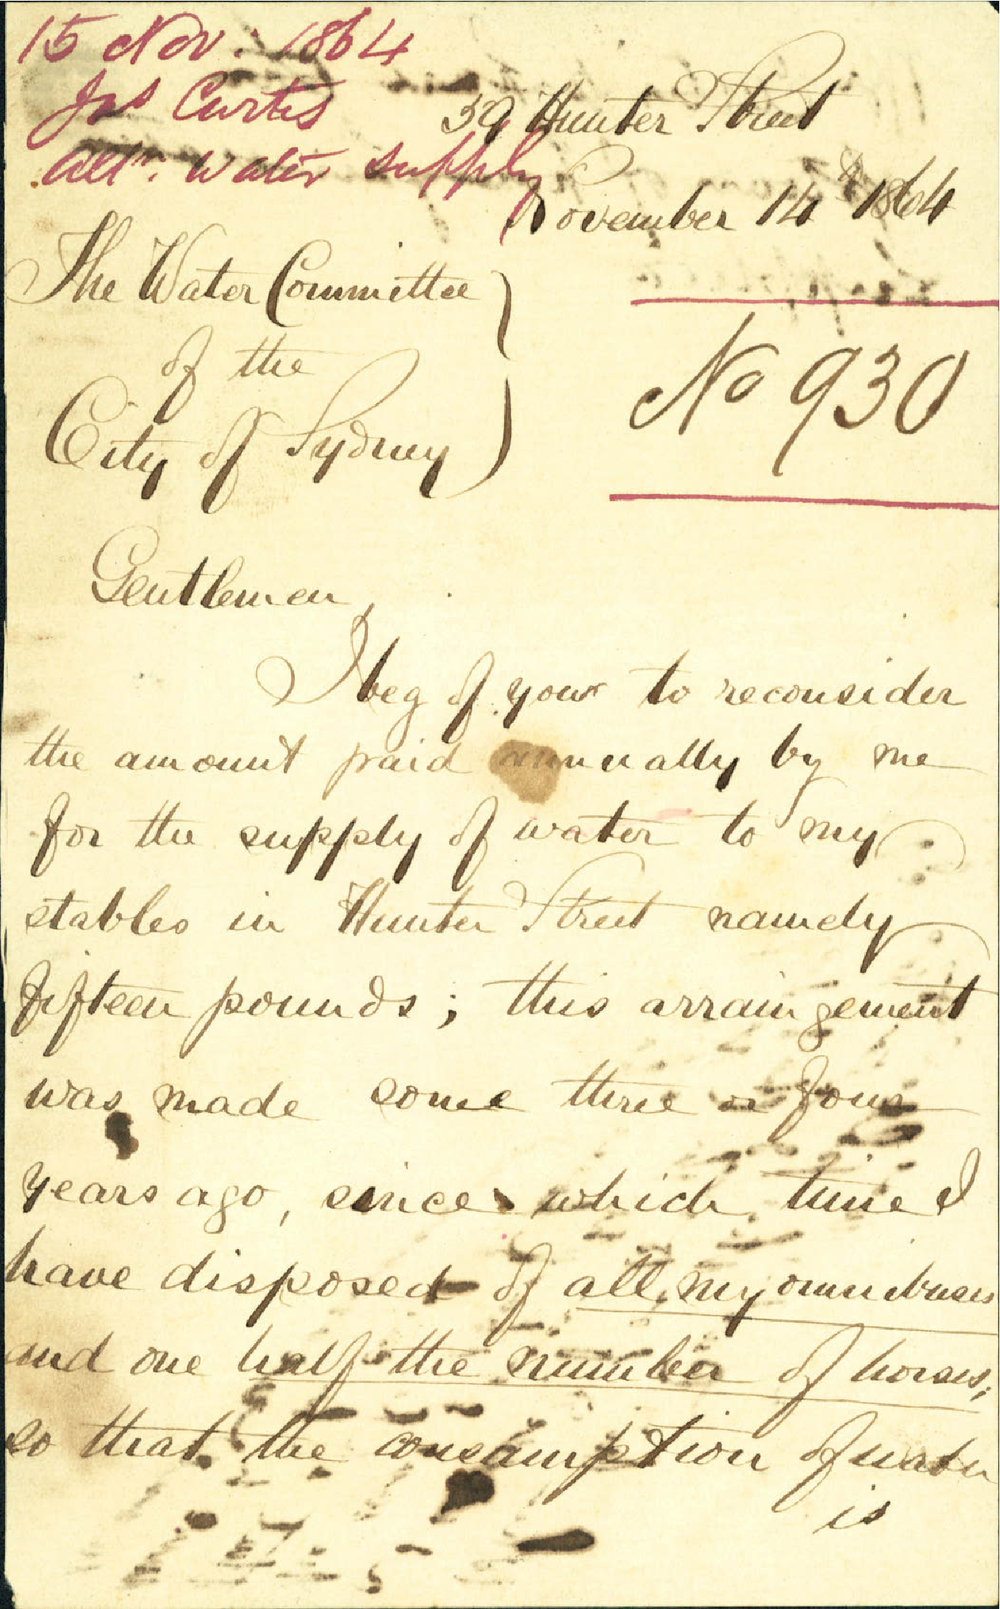 15 Nov. 1864
Jas Curtis
altn. water supply
59 Hunter Street
November 14th 1864
The Water Committee
of the
City of Sydney
No 930
Gentlemen,
I beg of your to reconsider
the amount paid annually by me
for the supply of water to my
stables in Hunter Street namely
fifteen pounds; this arraingement
was made some three or four
years ago, since which time I
have disposed of all my omnibuses
and one half the number of horses,
so that the consumption of water
is